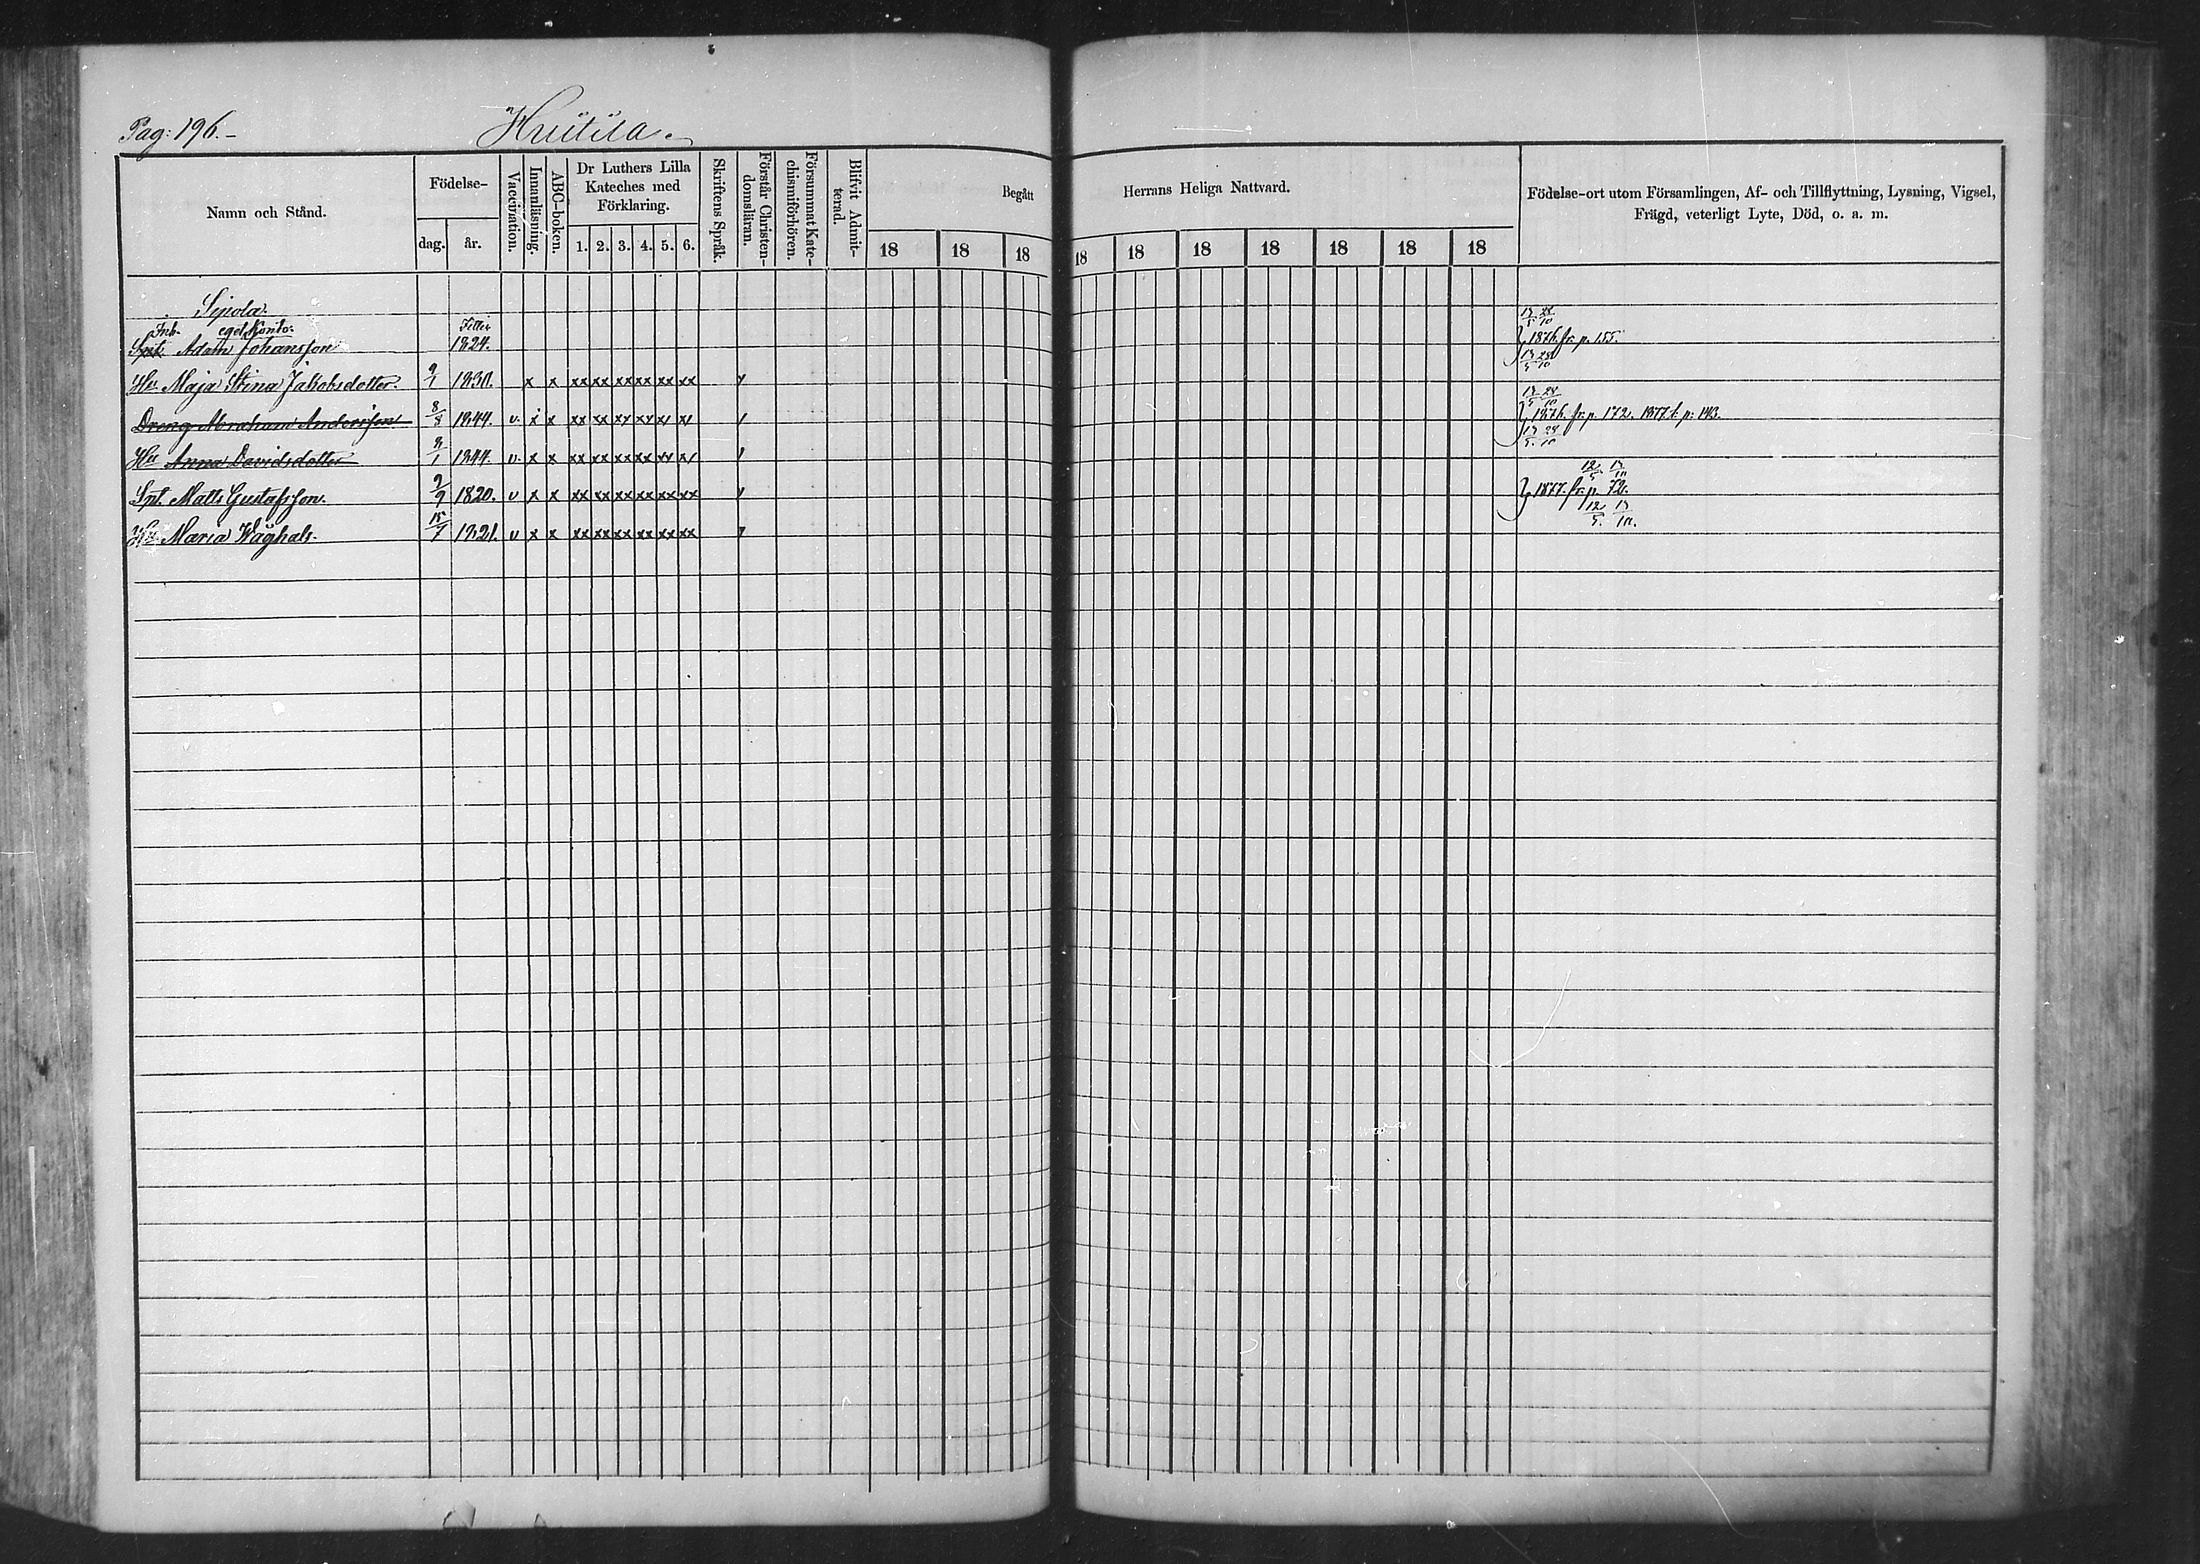 Pag: 196.-
Namn och Stånd.
Födelse-
dag.
år.
Vaccination.
Innanläsning.
ABC-boken.
Dr Luthers Lilla
Kateches med
Förklaring.
1. 2. 3. 4. 5. 6.
Skriftens Språk.
Förstår Christen-
domsläran.
Försummat Kate-
chismiförhören.
Blifvit Admit-
terad.
Begått
18 18 18
Herrans Heliga Nattvard.
18 18 18 18 18 18 18
Födelse-ort utom Församlingen, Af- och Tillflyttning, Lysning, Vigsel,
Frägd, veterligt Lyte, Död, o. a. m.
Sipola.
Inh. eget Konto.
Spt. Adam Johansson 1824. 1876 fr. p. 155.
Hu Maja Stina Jakobsdotter. 9/1 1830. x x xx xx xx xx xx xx
Dreng Abraham Andersson 8/8 1844. v. x x xx xx xx xx xx xx 1876. fr. p. 172. 1877 t. p. 143.
Hu Anna Davidsdotter 1844. v. x x xx xx xx xx xx xx
Spt. Matts Gustafsson. 9/9 1820. v x x xx xx xx xx xx xx 1877. fr. p. 72.
Hu Maria Wäghals. 15/7 1821. v x x xx xx xx xx xx xx